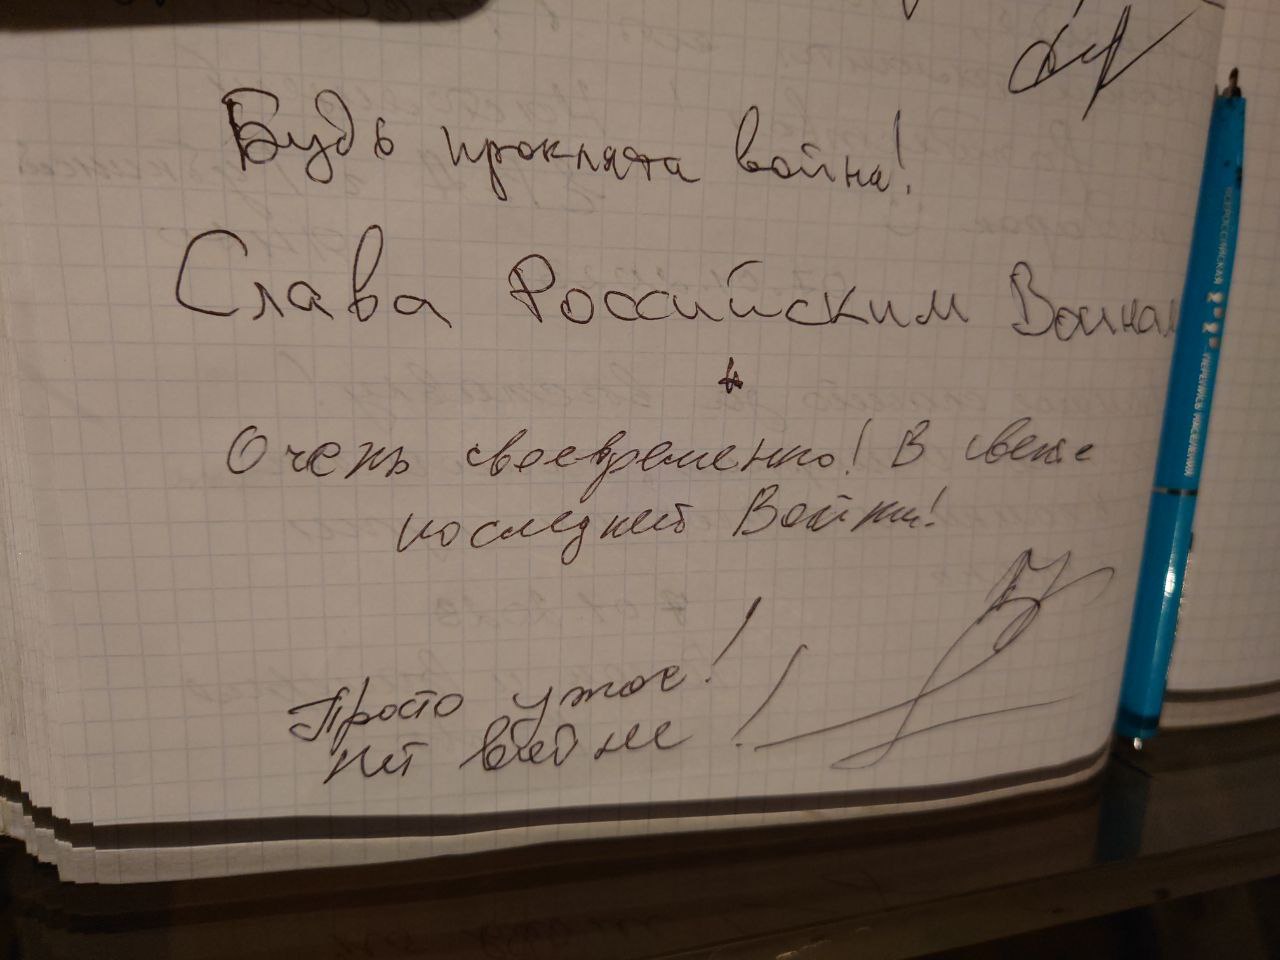 Будь проклята война!
Слава Российским Воинам
Очень своевременно! В свете
последней Войны!
Просто ужас!
нет войне!
ВСЕРОССИЙСКАЯ ПЕРЕПИСЬ НАСЕЛЕНИЯ